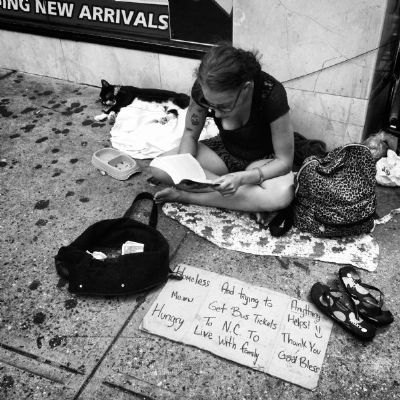 ING NEW ARRIVALS
Homeless
Meow
Hungry
And trying to
Get Bus Tickets
To N.C To
Live With family
Anything
Helps! :)
Thank You
God Bless